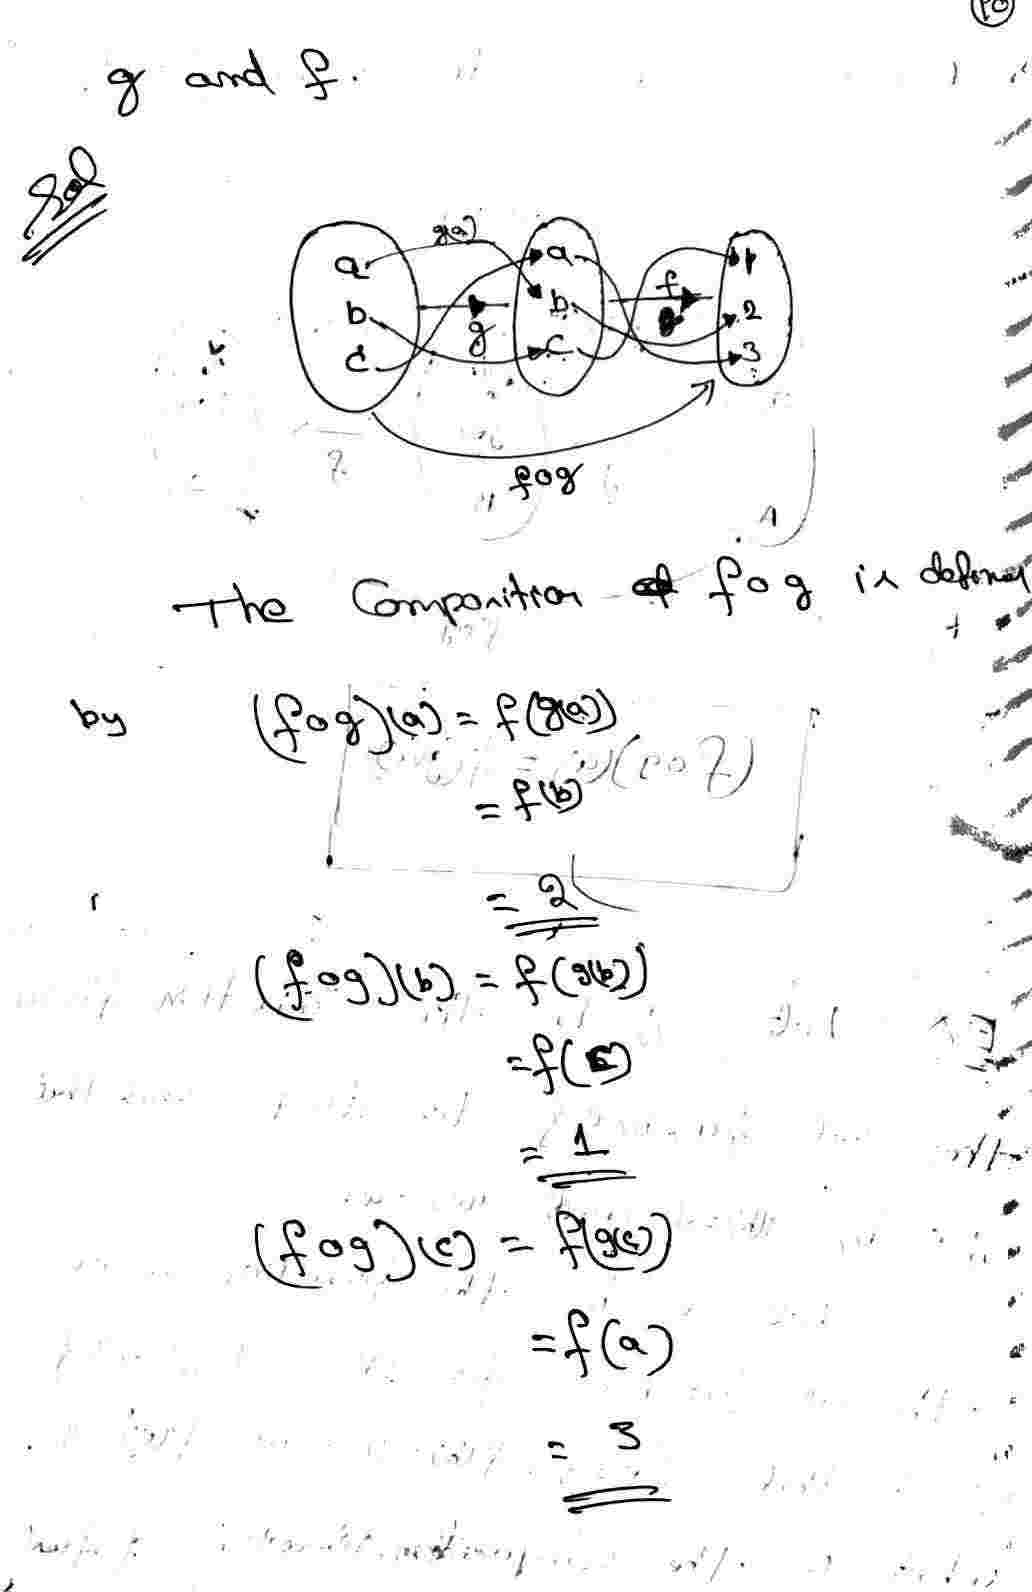 10
g and f.
Sol
g(a)
a a 1
b g b f 2
c c 3
fog
The Composition of fog is defined
by (fog)(a) = f(g(a))
= f(b)
= 2
(fog)(b) = f(g(b))
= f(c)
= 1
(fog)(c) = f(g(c))
= f(a)
= 3